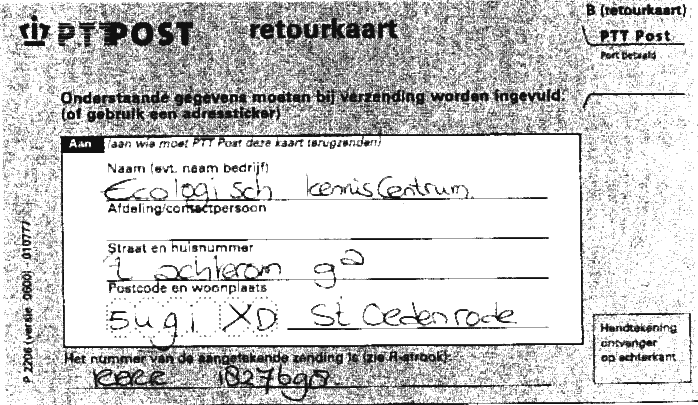 PTT POST
retourkaart
B (retourkaart)
PTT Post
Port Betaald
Onderstaande gegevens moeten bij verzending worden ingevuld.
(of gebruik een adressticker)
Aan (aan wie moet PTT Post deze kaart terugzenden)
Naam (evt. naam bedrijf)
Ecologisch kennisCentrum
Afdeling/contactpersoon
Straat en huisnummer
't achterom 9a
Postcode en woonplaats
5491 XD St Oedenrode
Het nummer van de aangetekende zending is (zie R-strook):
RRRR
Handtekening
ontvanger
op achterkant
P 2206 (versie 0600) - 010777